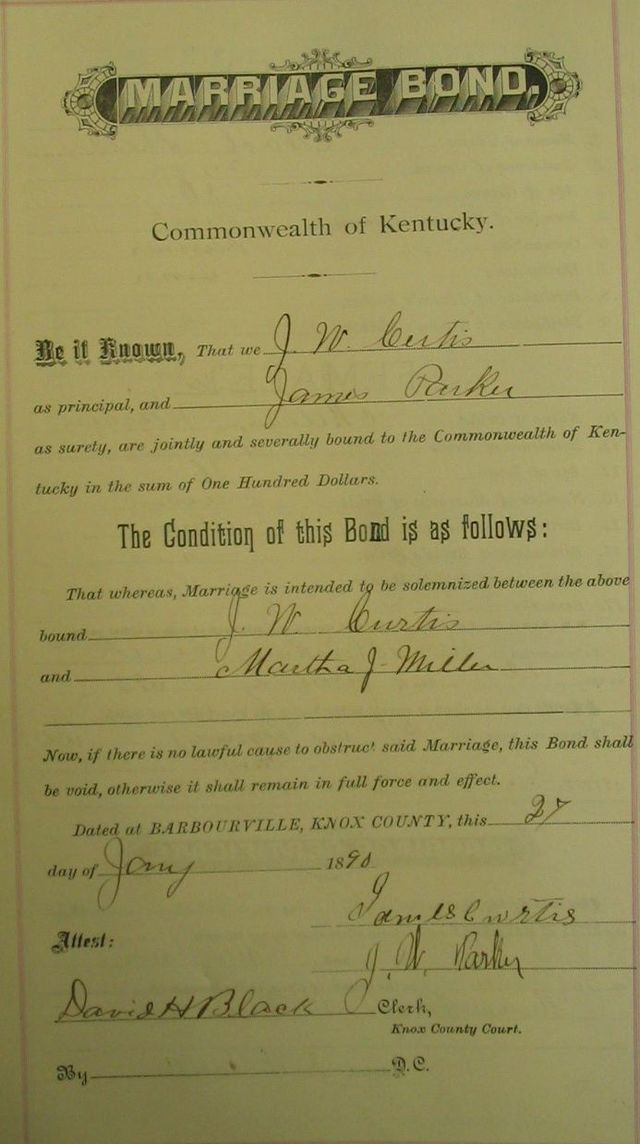 MARRIAGE BOND.
Commonwealth of Kentucky.
Be it Known, That we J. W. Curtis
as principal, and James Parker
as surety, are jointly and severally bound to the Commonwealth of Ken-
tucky in the sum of One Hundred Dollars.
The Condition of this Bond is as follows:
That whereas, Marriage is intended to be solemnized between the above
bound J. W. Curtis
and Martha J. Miller
Now, if there is no lawful cause to obstruct said Marriage, this Bond shall
be void, otherwise it shall remain in full force and effect.
Dated at BARBOURVILLE, KNOX COUNTY, this 27
day of Jany 1890
James Curtis
Attest:
J. W. Parker
David H Black Clerk,
Knox County Court.
By D.C.